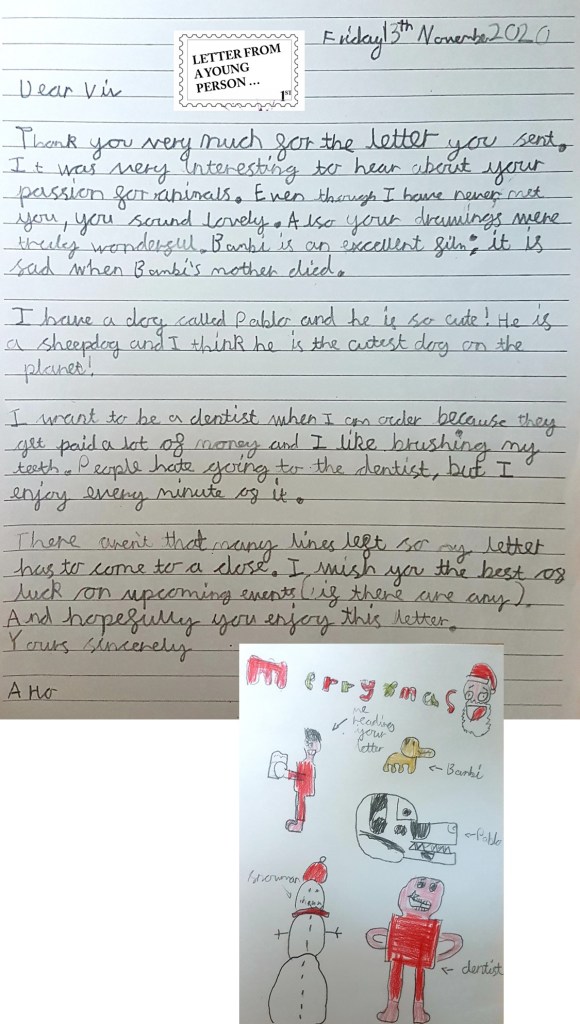 Friday 13th November 2020
LETTER FROM
A YOUNG
PERSON...
1ST
Dear Viv
Thank you very much for the letter you sent.
It was very interesting to hear about your
passion for animals. Even though I have never met
you, you sound lovely. Also your drawings were
truly wonderful. Bambi is an excellent film; it is
sad when Bambi's mother died.
I have a dog called Pablo and he is so cute! He is
a sheepdog and I think he is the cutest dog on the
planet!
I want to be a dentist when I am older because they
get paid a lot of money and I like brushing my
teeth. People hate going to the dentist, but I
enjoy every minute of it.
There aren't that many lines left so my letter
has to come to a close. I wish you the best of
luck on upcoming events (if there are any).
And hopefully you enjoy this letter.
Yours sincerely
A Ho
merry xmas
me
reading
your
letter
Bambi
Pablo
Snowman
dentist